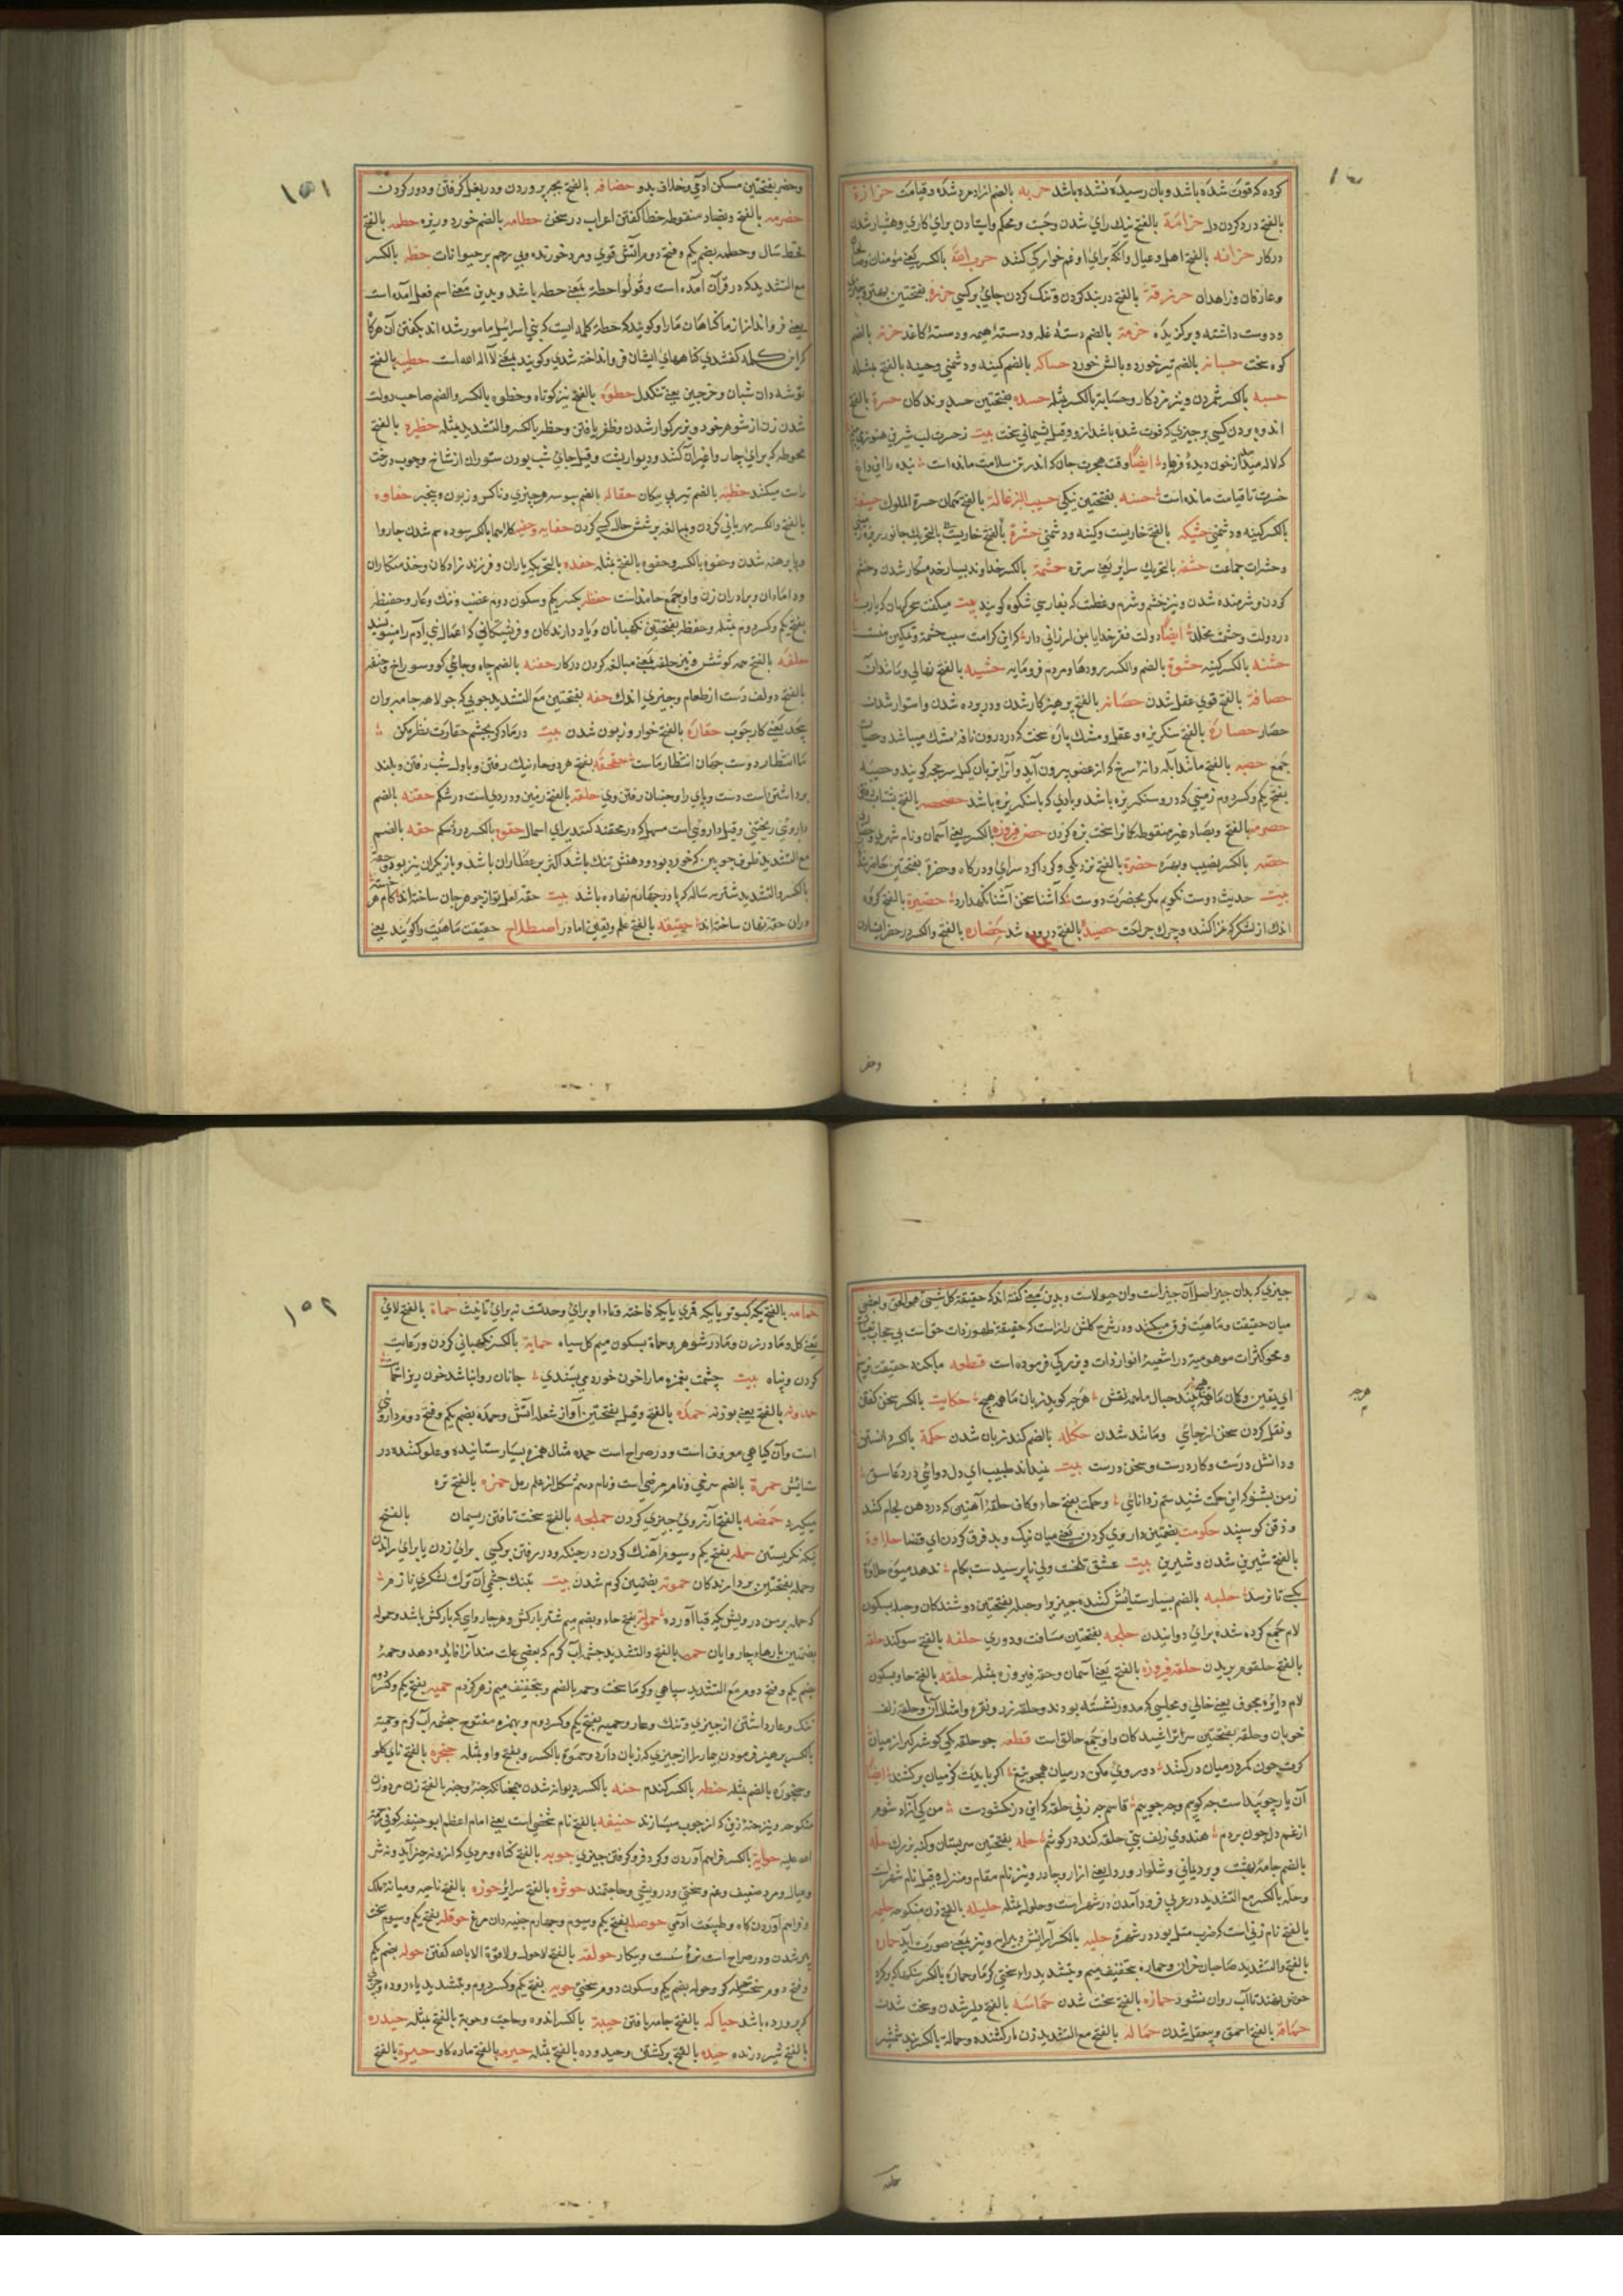 کرده که فوت شده باشد وبان رسیده نشده باشد حربه بالضم ازاد مرد شده وقیامت حزازة
بالفتح درد کردن دل حزامة بالفتح نیک رای شدن ومحکم وایستادن برای کاری وهشیار شدن
درکار حزانه بالفتح اهل وعیال وانکه برای او غم خوارکی کنند حزب الله بالکسر یعنی مؤمنان
وعارفان وزاهدان حزرقة بالفتح دربند کردن وتنک کردن جای بر کسی حزره بفتحتین بهتر
ودوست داشته وبرکزیده حزمة بالضم دسته غله ودسته هیمه ودسته کاغذ بالضم
کوه سخت حسبانه بالضم تیر خورد وبالش خورد حساکه بالضم کینه ودشمنی وحینه بالفتح مثله
حسبه بالکسر شمردن ونیز مزد کار وحسابة بالکسر مثله حسده بفتحتین حسد وندکان حسرة بالفتح
اندوه بردن کسی بر چیزی که فوت شده باشد ازو وقیل پشیمانی سخت بیت زحسرت لب شیرین هنوز می بینم
که لاله میدمد از خون دیده فرهاد ایضا وقت هجرت جان که اندر تن سلامت مانده است بنده را این داغ
حسرت تا قیامت مانده است حسنه بفتحتین نیکی حسیب الزغالة بالفتح حسرة الملوک حسیفه
بالکسر کینه ودشمنی حشیکه بالفتح خاریست وکینه ودشمنی حشرة بالفتح خاریست بالتحریک جانور ریزه
وحشرات جماعت حشفه بالتحریک سرایر یعنی سر نره حشمة بالکسر خداوند بسیار خدمتکار شدن وخشم
کردن وشرمنده شدن ونیز خشم وشرم وعظمت که بفارسی شکوه کویند بیت میکفت سحرکهان که یارب
در دولت وحشمت مخلد ایضا دولت فقر خدایا بمن ارزانی دار کاین کرامت سبب حشمت وتمکین منست
حشنه بالکسر کینه حشوة بالضم والکسر رودها ومردم فرومایه حشیه بالفتح نهالی ومانند آن
حصافة بالفتح قوی عقل شدن حصانه بالفتح پرهیز کار شدن ودر بوده شدن واستوار شدن
حصار حصاة بالفتح سنکریزه وعقل ومشک پاره سخت که در درون نافه مشک میباشد وحصیات
جمع حصبه بالفتح مانند ابله دانه سرخ که از عضو بیرون آید وآنرا بزبان کیل سرجه کویند وحصبه
بفتح یکم وکسر دوم زمینی که درو سنکریزه باشد وبادی که با سنکریزه باشد حصحصه بالفتح
حصرمه بالفتح وبصاد غیر منقوطه کمانرا سخت بزه کردن حصن فیروزه بالکسر یعنی آسمان ونام شهری
حصه بالکسر نصیب وبهره حضرة بالفتح نزدیکی وکرداکرد سرای ودرکاه وحضرة بفتحتین
بیت حدیث دوست نکویم مکر بحضرت دوست که آشنا سخن آشنا نکهدارد حضیرة بالفتح کروه
اندک از لشکر که غزا کنند وچرک جراحت بالفتح دروده شد حضاره بالفتح والکسر در حضر ایستادن
وحضر
وحضر بفتحتین مسکن ادمی وخلاف بدو حضانه بالفتح بچه پروردن ودر بغل کرفتن ودور کردن
حضرمه بالفتح وبضاد منقوطه خطا کفتن اعراب در سخن حطامه بالضم خورد وریزه حطمه بالفتح
قحط سال وحطمه بضم یکم وفتح دوم آتش قوی ومرد خورنده وبی رحم بر حیوانات حطه بالکسر
مع التشدید که در قرآن آمده است وقولوا حطة یعنی حطه باشد وبدین معنی اسم فعل امده است
یعنی فرو انداز از ما کناهان مارا وکویند که حطه کلمه ایست که بنی اسرائیل مامور شده اند بکفتن آن هرکاه
که این کلمه کفتندی کناههای ایشان فرو انداخته شدی وکویند یعنی لا اله الا الله است حطیه بالفتح
توشه دان شبان وخرجین یعنی تنکدل حظوة بالفتح تیر کوتاه وحظوه بالکسر والضم صاحب دولت
شدن زن از شوهر خود وبزرکوار شدن وظفر یافتن وحظه بالکسر والتشدید مثله حظیره بالفتح
محوطه که برای چار وا وغیر آن کنند ودیوار پشت وقیل جای شب بودن ستوران از شاخ وچوب درخت
راست میکنند حظیه بالضم تیر بی پیکان حفاله بالضم سبوسه هر چیزی وناکس وزبون وبیخیر حفاوه
بالفتح والکسر مهربانی کردن وبمبالغه پرسش حال کسی کردن حفایه وحفیه کلاهما بالکسر سوده سم شدن چاروا
وپا برهنه شدن وحفوه بالکسر وحفوه بالفتح مثله حفده بالتحریک یاران وفرزند زادکان وخدمتکاران
ودامادان وبرادران زن واو جمع حافد است حفظه بکسر یکم وسکون دوم غضب وننک وعار وحفیظه
بفتح یکم وکسر دوم مثله وحفظه بفتحتین نکهبانان ویاد دارندکان وفرشتکانی که اعمال بنی آدم را مینویسند
حفله بالفتح همه کوشش ونیز حفله یعنی مبالغه کردن درکار حفنه بالضم چاه وجایی کو وسوراخ وحفنه
بالفتح دو کف دست از طعام وچیزی اندک حفه بفتحتین مع التشدید چوبی که جولاهه جامه بران
پیچد یعنی کار چوب حقاره بالفتح خوار وزبون شدن بیت در ما دکر بچشم حقارت نظر مکن
ما انتظار دوست جهان انتظار ماست حقحقه بفتح هر دو حا ونیک رفتن وباول شب رفتن وبلند
برداشتن است دست وپای را وجنبان رفتن وی حقله بالفتح زمین ودردی است در شکم حقنه بالضم
داروی ریختنی وقیل داروئی است مسهل که در محقنه کنند برای اسهال حقوه بالکسر درد شکم حقه بالضم
مع التشدید ظرف چوبین که خورد بود ودهنش تنک باشد اکثر بر عطاران باشد وبازیکران نیز بود وحقه
بالکسر والتشدید شتر سه ساله که پا در چهارم نهاده باشد بیت حقه لعل تو از جوهر جان ساخته اند کام هر خسته
دران حقه نهان ساخته اند حقیقه بالفتح علم ویقین اما در اصطلاح حقیقت ماهیت را کویند یعنی
١٥١
چیزی که بدان چیز اصل آن چیز است وان هیولاست وبدین معنی کفته اند که حقیقة کل شی هو الحق وبعضی
میان حقیقت وماهیت فرق میکنند ودر شرح کلشن راز است که حقیقة ظهور ذات حق است بی حجاب تعینات
ومحو کثرات موهومه در اشعه انوار ذات وبزرکی فرموده است قطعه ما بکنه حقیقت نرسیم
ای یقین وکمان ما همه هیچ چند خیال ما همه نقش هرچه کوید زبان ما همه هیچ حکایت بالکسر سخن کفتن
ونقل کردن سخن از جائی ومانند شدن حکله بالضم کند زبان شدن حکمة بالکسر دانستن
ودانش درست وکار درست وسخن درست بیت نیداند طبیب ای دل دوائی درد عاشق
ز من بشنو که این حکمت شنیدستم ز دانائی وحکمت بفتح حاء وکاف حلقه آهنین که در دهن لجام کنند
وذقن کوسپند حکومت بضمتین داوری کردن یعنی میان نیک وبد فرق کردن ای قضا حلاوة
بالفتح شیرین شدن وشیرین بیت عشق تلخست ولی تا برسیدست بکام ندهد میوه حلاوة
بکسی تا نرسد حلبه بالضم بسیار ستایش کننده چیز را وحبله بفتحتین دوشندکان وحبله بسکون
لام جمع کرده شده برای دوانیدن حلجه بفتحتین مسافت ودوری حلفه بالفتح سوکند حلقه
بالفتح حلقوم بریدن حلقه فیروزه بالفتح یعنی آسمان وحقه فیروزه مثله حلقه بالفتح حا وبسکون
لام دایره مجوف یعنی خالی ومجلسی که مدور نشسته بودند وحلقه زر ونقره وامثال آن وحلقه زلف
خوبان وحلقه بفتحتین سر تراشیدکان واو جمع حالق است قطعه چو حلقه کی کوشه کیر از میان
کرت چون کمر در میان در کشند دوروی مکن در میان همچو تیغ اکر بایدت کز میان برکشند ایضا
آن یار چو پیداست چه کویم وچه جوییم قاسم چه زنی حلقه که این در نکشودست من کی آزاد شوم
از غم دل چون هر دم هندوی زلف بتی حلقه کند در کوشم حلمه بفتحتین سر پستان وکنه بزرک حله
بالضم جامه بهشت وبرد یمانی وشلوار وردا یعنی ازار وچادر ونیز نام مقام ومنزل وقیل نام شهریست
وحله بالکسر مع التشدید در عربی فرود آمدن در شهر است وحلول مثله حلیله بالفتح زن منکوحه حلیمه
بالفتح نام زنی است که ضرب مثل بود در شهرة حلیه بالکسر آرایش وپیرایه ونیز بمعنی صورت آید حماره
بالفتح والتشدید صاحبان خران وحماره بتخفیف میم وتشدید راء سختی کرما وحماره بالکسر
حوض نهند تا آب روان نشود حمازه بالفتح سخت شدن حماسه بالفتح دلیر شدن وسخت شدن
حماقه بالفتح احمق وبیعقل شدن حماله بالفتح مع التشدید زن بارکشنده وحماله بالکسر بند شمشیر
حمامه
حمامه بالفتح یکه کبوتر یا یکه قمری یا یکه فاخته وتاء او برای وحدتست نه برای تانیث حماة بالفتح لای
یعنی کل ومادر زن ومادر شوهر وحماة بسکون میم کل سیاه حمایة بالکسر نکهبانی کردن ورعایت
کردن وپناه بیت چشمت بغمزه مارا خون خورد می پسندی جانان روا نباشد خون ریز را حمایت
حمدونه بالفتح یعنی بوزنه حمده بالفتح وقیل بفتحتین آواز شعله آتش وحمده بضم یکم وفتح دوم داروی
است وآن کیاهی معروف است ودر صراح است حمده مثال همزه بسیار ستاینده وغلو کننده در
ستایش حمرة بالضم سرخی ونام مرضی است ونام دهم شکل از علم رمل حمزه بالفتح تره
میکیرد حمضه بالفتح آرزوی چیزی کردن حملجه بالفتح سخت تافتن ریسمان بالفتح
یکه نکریستن حمله بفتح یکم وسیوم آهنک کردن در جنک ودر رفتن بر کسی برای زدن یا برای راندن
وحمله بفتحتین بردارندکان حموته بضمتین کوم شدن بیت بتنک چشمی آن ترک لشکری نازم
که حمله بر من درویش یک قبا آورد حموله بفتح حاء وبضم میم شتر بارکش وهر چاروای که بارکش باشد وحموله
بضمتین بارها وچاروایان حمه بالفتح والتشدید چشمه آب کرم که بعضی علت مند آنرا فایده دهد وحمه
بضم یکم وفتح دوم مع التشدید سیاهی وکرما سخت وحمه بالضم وبتخفیف میم زهر کژدم حمیه بفتح یکم وکسر دوم
ننک وعار داشتن از چیزی وننک وعار وحمیه بفتح یکم وکسر دوم وبهمزه مفتوح چشمه آب کرم وحمیة
بالکسر پرهیز فرمودن بیمار را از چیزی که زیان دارد وحموة بالکسر وبفتح واو مثله حنجره بالفتح نای کلو
وحنجوره بالضم مثله حنطه بالکسر کندم حنه بالکسر دیوانه شدن همچنانکه جنه وحنه بالفتح زن مرد وزن
منکوحه ونیز حنه زین که از چوب میسازند حنیفه بالفتح نام شخصی است یعنی امام اعظم ابو حنیفه کوفی رحمة
الله علیه حوایة بالکسر فراهم آوردن وکرد فرو کرفتن چیزی حوبه بالفتح کناه ومردی که ازو نه خیر آید ونه شر
وعیال ومرد ضعیف وغم وسختی ودرویشی وحاجتمند حوثره بالفتح سرایر حوزه بالفتح ناحیه ومیانه ملک
وفراهم آوردن کاه وطبیعت آدمی حوصله بفتح یکم وسیوم وچهارم چینه دان مرغ حوقله بفتح یکم وسیوم سخت
پیر شدن ودر صراح است نره سست وبیکار حولقه بالفتح لا حول ولا قوة الا بالله کفتن حوله بضم یکم
وفتح دوم سخت حیله کر وحوله بضم یکم وسکون دوم سختی حویه بفتح یکم وکسر دوم وبتشدید یاء روده وچربی
کرد روده باشد حیاکه بالفتح جامه بافتن حیبة بالکسر اندوه وحاجت وحوبة بالفتح مثله حیدره
بالفتح شیر درنده حیده بالفتح برکشتن وحیدوده بالفتح مثله حیرمه بالفتح ماده کاو حیرة بالفتح
١٥٢